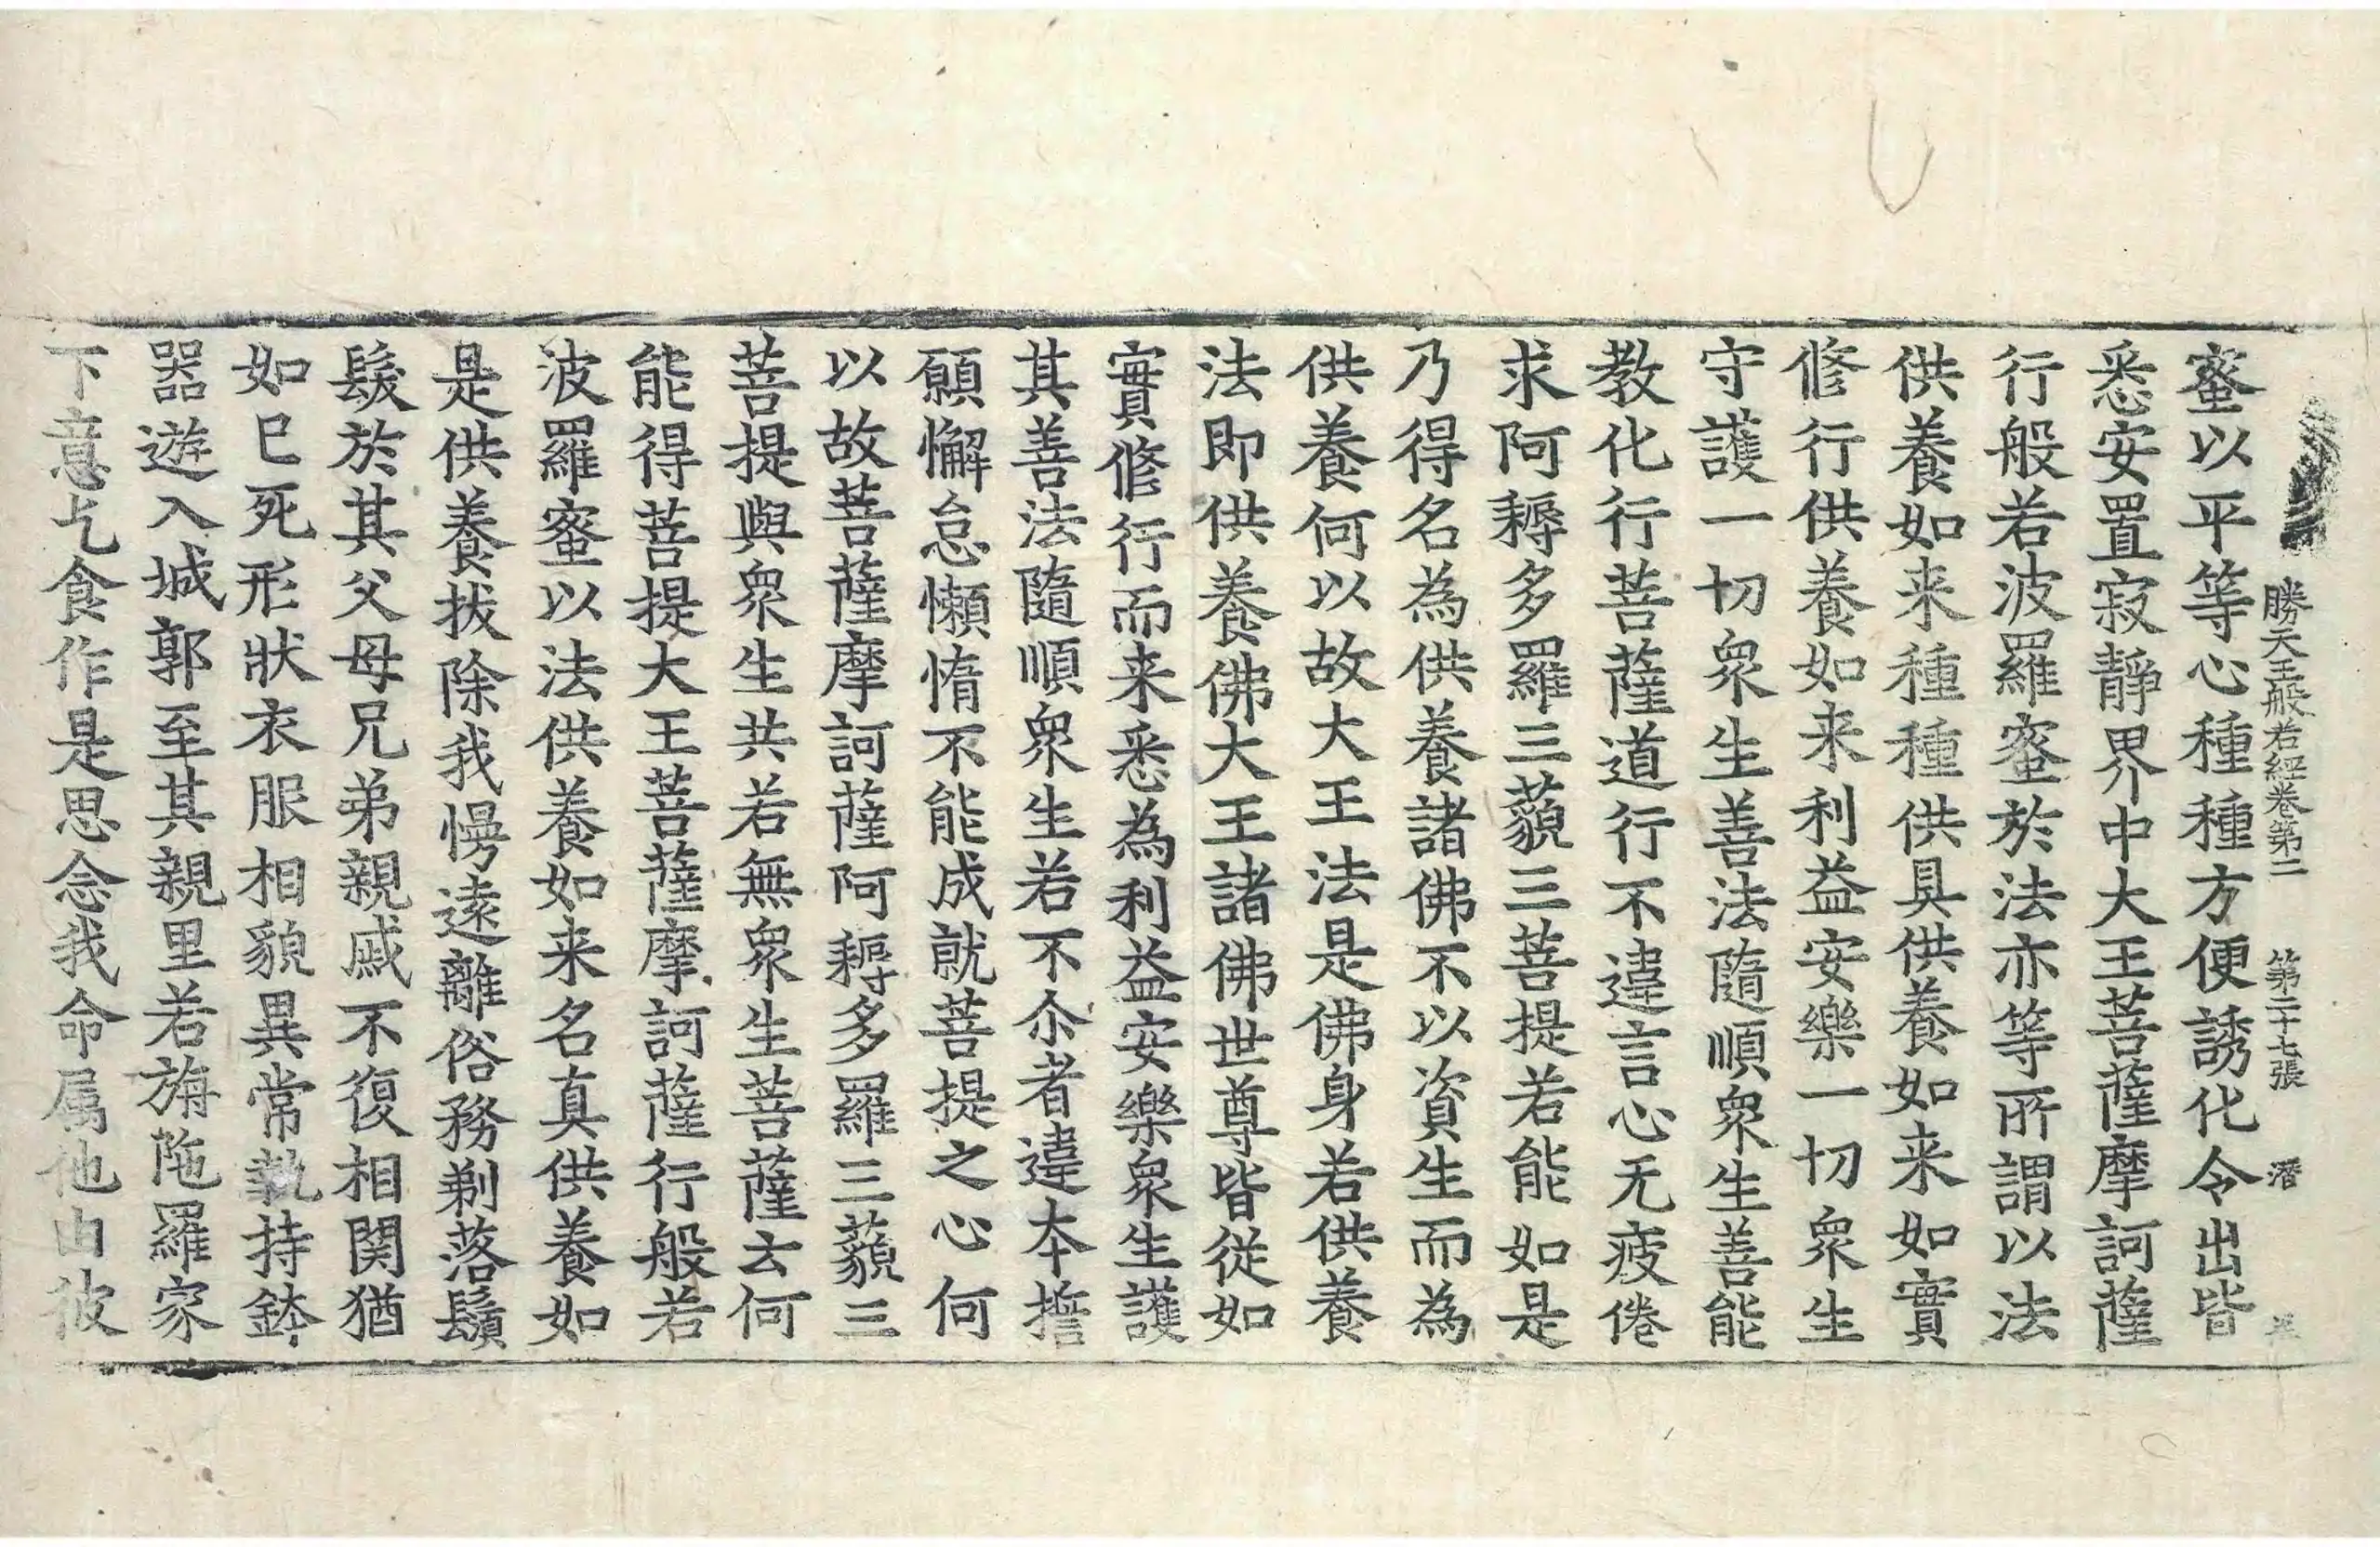 勝天王般若經卷第二　第二十七張　潛
蜜以平等心種種方便誘化令出皆
悉安置寂靜界中大王菩薩摩訶薩
行般若波羅蜜於法亦等所謂以法
供養如来種種供具供養如来如實
修行供養如来利益安樂一切衆生
守護一切衆生善法隨順衆生善能
教化行菩薩道行不違言心无疲倦
求阿耨多羅三藐三菩提若能如是
乃得名為供養諸佛不以資生而為
供養何以故大王法是佛身若供養
法即供養佛大王諸佛世尊皆從如
實修行而来悉為利益安樂衆生護
其善法隨順衆生若不尒者違本擔
願懈怠懶惰不能成就菩提之心何
以故菩薩摩訶薩阿耨多羅三藐三
菩提與衆生共若無衆生菩薩云何
能得菩提大王菩薩摩訶薩行般若
波羅蜜以法供養如来名真供養如
是供養拔除我慢遠離俗務剃落鬚
髮於其父母兄弟親戚不復相関猶
如已死形狀衣服相貌異常執持鉢
器遊入城郭至其親里若旃陁羅家
下意乞食作是思念我命属他由彼